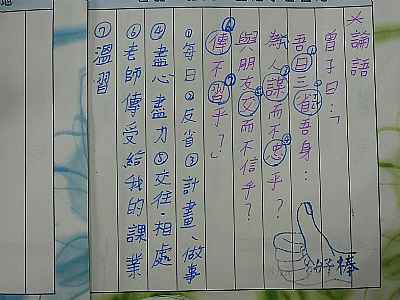 ※論語
曾子曰：「
吾日三省吾身：
為人謀而不忠乎？
與朋友交而不信乎？
傳不習乎？」
①每日②反省③計畫、做事
④盡心盡力⑤交往、相處
⑥老師傳受給我的課業
⑦溫習
好棒